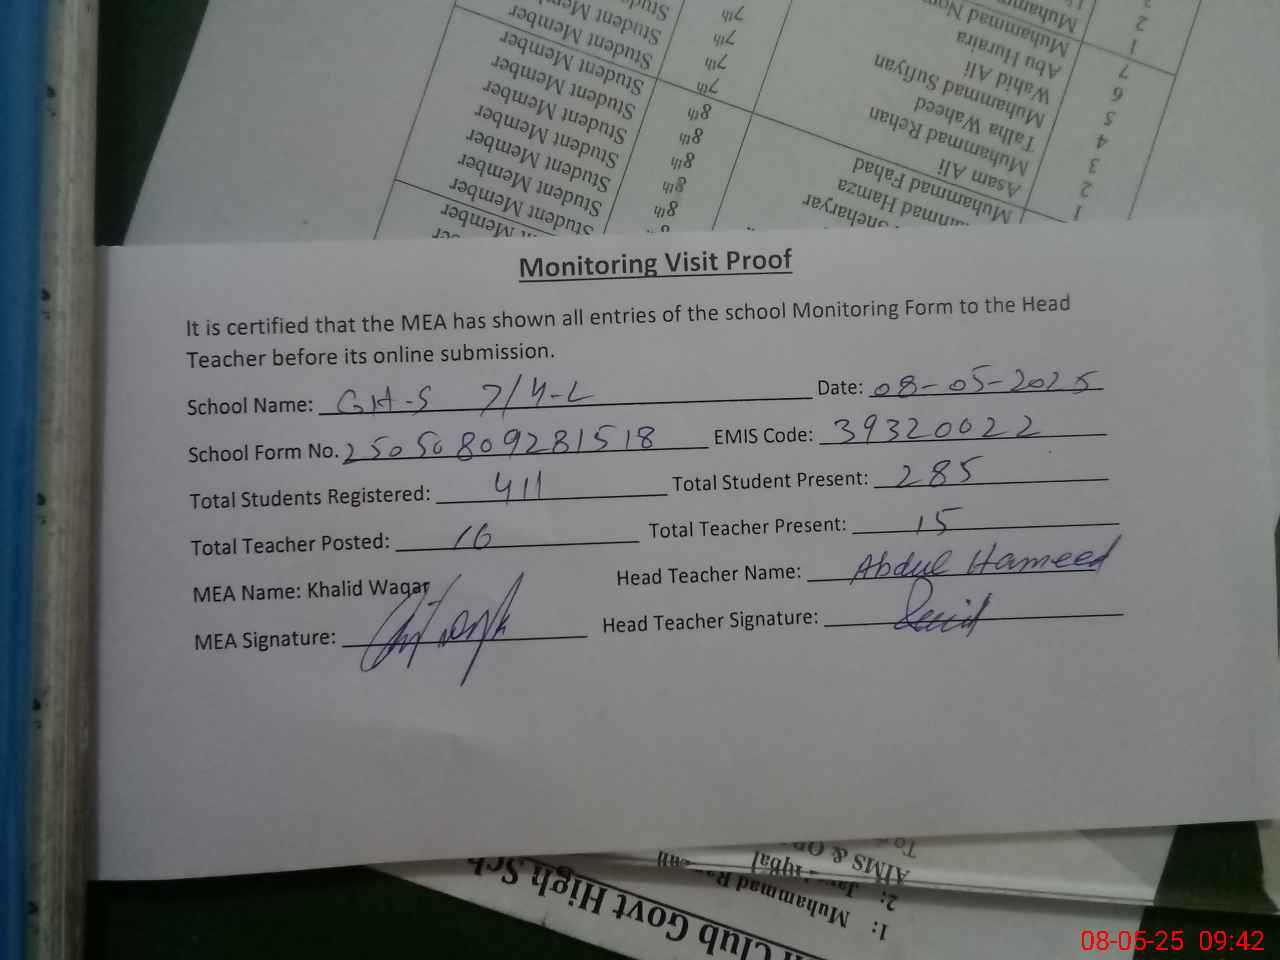 Student Member 7th
Student Member 7th
Student Member 7th
Student Member 7th
Student Member 8th
Student Member 8th
Student Member 8th
Student Member 8th
Student Member 8th
Muhammad
Muhammad
Abu Huraira
Wahid Ali
Muhammad Sufiyan
Talha Waheed
Muhammad Rehan
Asam Ali
Muhammad Fahad
Hamza
2
1
7
6
5
4
3
2
1
Monitoring Visit Proof
It is certified that the MEA has shown all entries of the school Monitoring Form to the Head
Teacher before its online submission.
School Name: GHS 7/4-L Date: 08-05-2025
School Form No. 25050809281518 EMIS Code: 39320022
Total Students Registered: 411 Total Student Present: 285
Total Teacher Posted: 16 Total Teacher Present: 15
MEA Name: Khalid Waqar Head Teacher Name: Abdul Hameed
MEA Signature: Head Teacher Signature:
AIMS &
2:
1: Muhammad
Club Govt High Sch
08-05-25 09:42